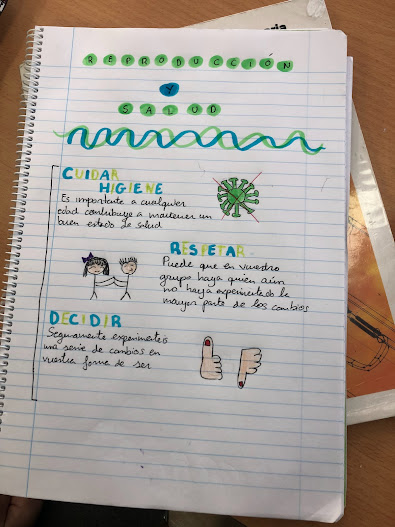 REPRODUCCIÓN
Y
SALUD
CUIDAR
HIGIENE
Es importante a cualquier
edad contribuye a mantener un
buen estado de salud
RESPETAR
Puede que en vuestro
grupo haya quien aún
no haya experimentado la
mayor parte de los cambios
DECIDIR
Seguramente experimentéis
una serie de cambios en
vuestra forma de ser